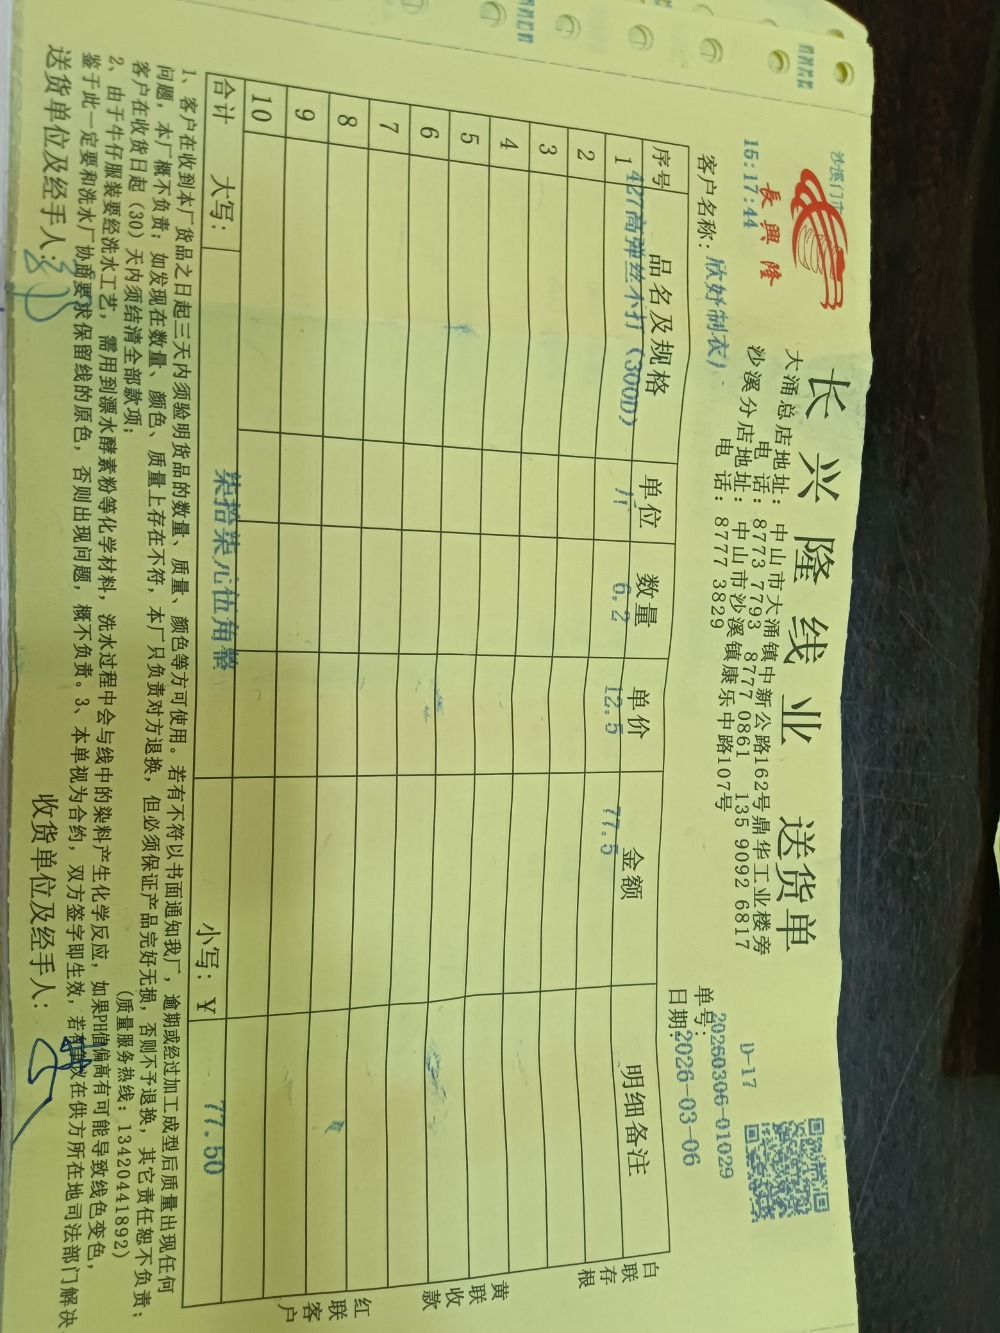 沙溪门市
15:17:44
長興隆
长兴隆线业 送货单
大涌总店地址: 中山市大涌镇中新公路162号鼎华工业楼旁
电 话: 8773 7793 8777 0861 135 9092 6817
沙溪分店地址: 中山市沙溪镇康乐中路107号
电 话: 8777 3829
D-17
单号: 20260306-01029
日期: 2026-03-06
客户名称: 欣好制衣厂
序号 品名及规格 单位 数量 单价 金额 明细备注
1 427高弹丝不打（300D） 斤 6.2 12.5 77.5
2
3
4
5
6
7
8
9
10
合计 大写: 柒拾柒元伍角整 小写: ¥ 77.50
白联存根
黄联收款
红联客户
1、客户在收到本厂货品之日起三天内须验明货品的数量、质量、颜色等方可使用。若有不符以书面通知我厂，逾期或经过加工成型后质量出现任何
问题，本厂概不负责；如发现在数量、颜色、质量上存在不符，本厂只负责对方退换，但必须保证产品完好无损，否则不予退换，其它责任恕不负责；
客户在收货日起（30）天内须结清全部款项； (质量服务热线: 13420441892)
2、由于牛仔服装要经洗水工艺，需用到漂水酵素粉等化学材料，洗水过程中会与线中的染料产生化学反应，如果PH值偏高有可能导致线色变色，
鉴于此一定要和洗水厂协商要求保留线的原色，否则出现问题，概不负责。3、本单视为合约，双方签字即生效，若有争议在供方所在地司法部门解决
送货单位及经手人: 收货单位及经手人: